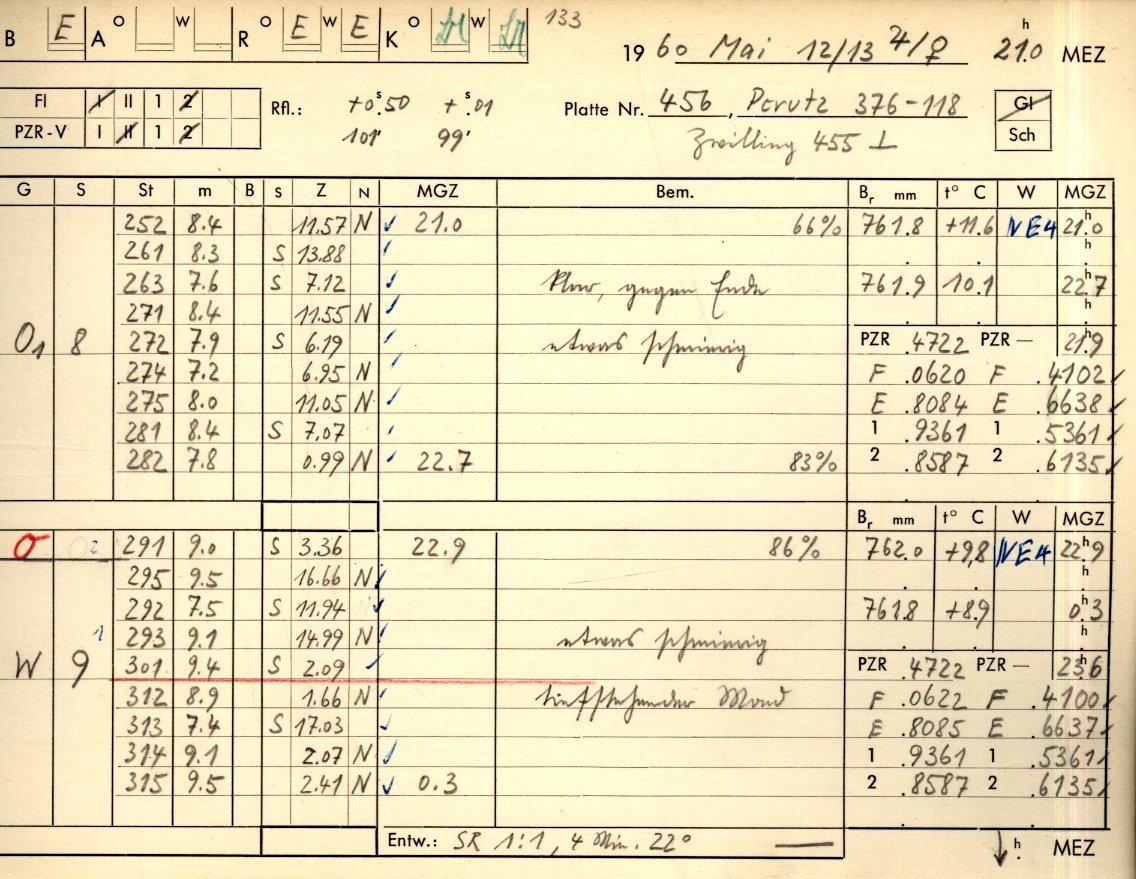 133
B E A O W R O E W E K O W
19 60 Mai 12/13 ♃/♀ 21.0 h MEZ
Fl I II 1 2
PZR-V I II 1 2
Rfl.: +0.50 s + .01 s
101' 99'
Platte Nr. 456, Perutz 376-118
Zwilling 455 ⊥
Gl
Sch
G S St m B S Z N MGZ Bem. Br mm t° C W MGZ
252 8.4 11.57 N ✓ 21.0 66% 761.8 +11.6 NE4 21.0 h
261 8.3 S 13.88
263 7.6 S 7.12 klar, gegen Ende 761.9 10.1 22.7 h
271 8.4 11.55 N
O1 8 272 7.9 S 6.19 etwas schmierig PZR .4722 PZR — 21.9 h
274 7.2 6.95 N F .0620 F .4102 ✓
275 8.0 11.05 N E .8084 E .6638 ✓
281 8.4 S 7.07 1 .9361 1 .5361 ✓
282 7.8 0.99 N 22.7 83% 2 .8587 2 .6135 ✓
Br mm t° C W MGZ
O 2 291 9.0 S 3.36 22.9 86% 762.0 +9.8 NE4 22.9 h
295 9.5 16.66 N ✓
292 7.5 S 11.94 ✓ 761.8 +8.9 0.3 h
1 293 9.1 14.99 N etwas schmierig
W 9 301 9.4 S 2.09 ✓ PZR .4722 PZR — 23.6 h
312 8.9 1.66 N tiefstehender Mond F .0622 F .4100 ✓
313 7.4 S 17.03 ✓ E .8085 E .6637 ✓
314 9.1 2.07 N ✓ 1 .9361 1 .5361 ✓
315 9.5 2.41 N ✓ 0.3 2 .8587 2 .6135 ✓
Entw.: SR 1:1, 4 Min. 22° —
h MEZ